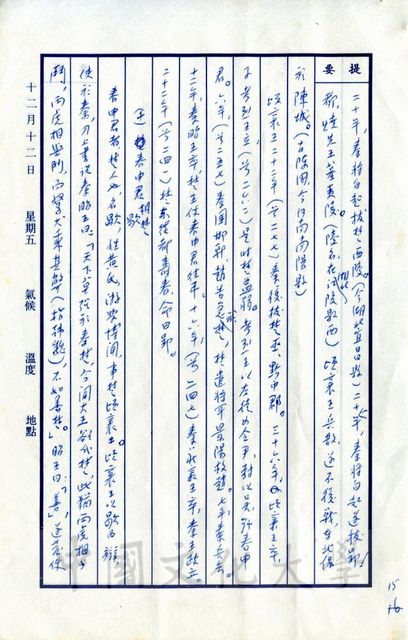 提要
二十年,秦將白起拔楚西陵。(今湖北宜昌縣)二十一年,秦將白起遂拔郢!
郢,燒先王墓夷陵。(陵名,在湖北縣西)頃襄王兵散,遂不復戰,東北保
於陳城。(古陳國,今河南縣)
頃襄王二十二年(前二七七)秦復拔楚巫、黔中郡。三十六年,頃襄王卒,
子考烈王立,(前二六二)是時楚益弱。考烈王以左徒為令尹,封以吳,號春申
君。六年,(前二五七)秦圍邯鄲,趙告急楚,楚遣將軍景陽救趙。七年,秦兵去。
十二年,秦昭王卒,楚王使春申君往弔。十六年,(前二四七)秦莊襄王卒,秦王政立。
二十二年(前二四一)楚東徙都壽春,命曰郢。
春申君相楚 歇
春申君者楚人也,名歇,姓黃氏,游學博聞,事楚頃襄王。頃襄王以歇為辯
使於秦。乃上書說秦昭王曰:「天下莫強於秦楚,今聞大王欲伐楚,此猶兩虎相與
鬥,兩虎相與鬥,而駑犬受其弊(指韓魏),不如善楚。」昭王曰:「善」,遂發使
十二月十二日 星期五 氣候 溫度 地點
中國文化大學
15
16